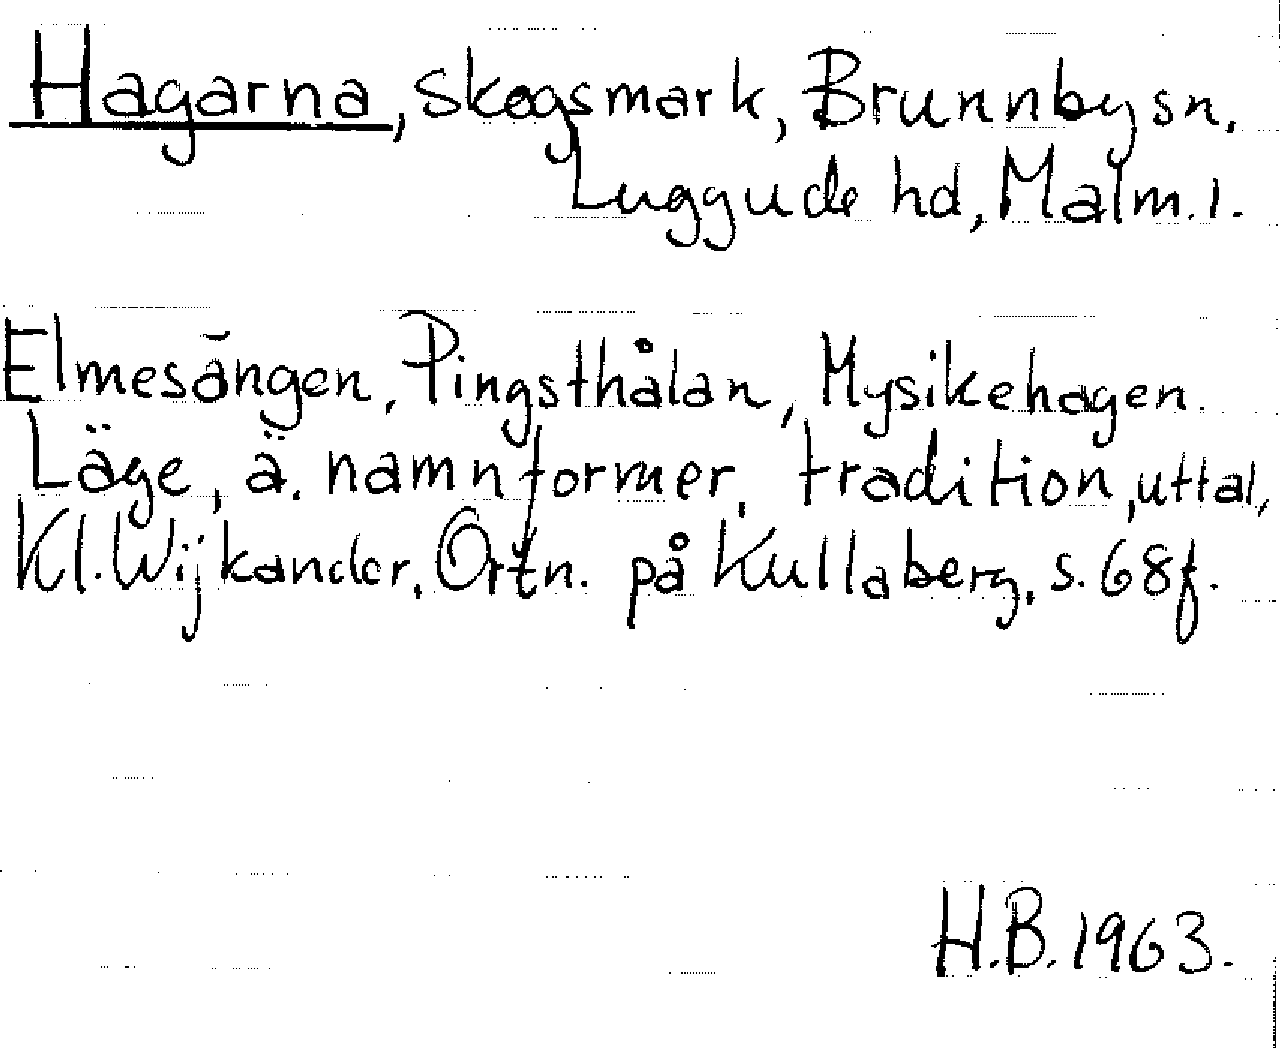 Hagarna, skogsmark, Brunnby sn,
Luggude hd, Malm.l.
Elmesängen, Pingsthålan, Mysikehagen.
Läge, ä. namnformer, tradition, uttal,
Kl. Wijkander, Ortn. på Kullaberg, s. 68f.
H.B. 1963.